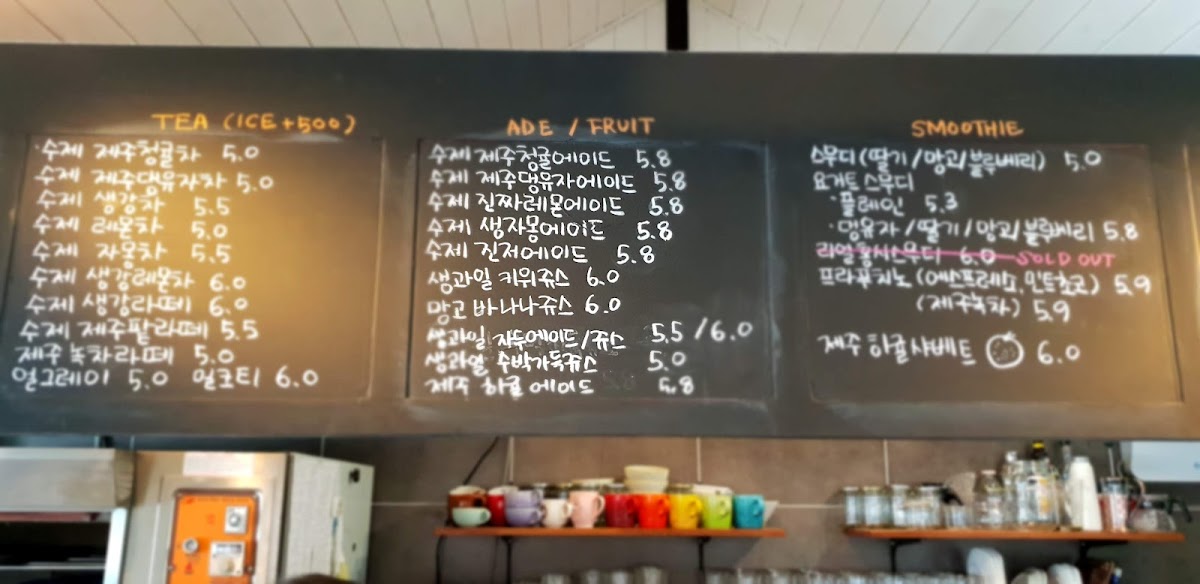 TEA (ICE+500)
· 수제 제주청귤차 5.0
수제 제주댕유자차 5.0
수제 생강차 5.5
수제 레몬차 5.0
수제 자몽차 5.5
수제 생강레몬차 6.0
수제 생강라떼 6.0
수제 제주팥라떼 5.5
제주녹차라떼 5.0
얼그레이 5.0 밀크티 6.0
ADE / FRUIT
수제 제주청귤에이드 5.8
수제 제주댕유자에이드 5.8
수제 진짜레몬에이드 5.8
수제 생자몽에이드 5.8
수제 진저에이드 5.8
생과일 키위쥬스 6.0
망고 바나나쥬스 6.0
생과일 자두에이드/쥬스 5.5 / 6.0
생과일 수박가득쥬스 5.0
제주 하귤에이드 5.8
SMOOTHIE
스무디 (딸기/망고/블루베리) 5.0
요거트 스무디
· 플레인 5.3
· 댕유자/딸기/망고/블루베리 5.8
리얼홍시스무디 6.0 SOLD OUT
프라푸치노 (에스프레소, 민트초코) 5.9
(제주녹차) 5.9
제주 하귤샤베트 6.0